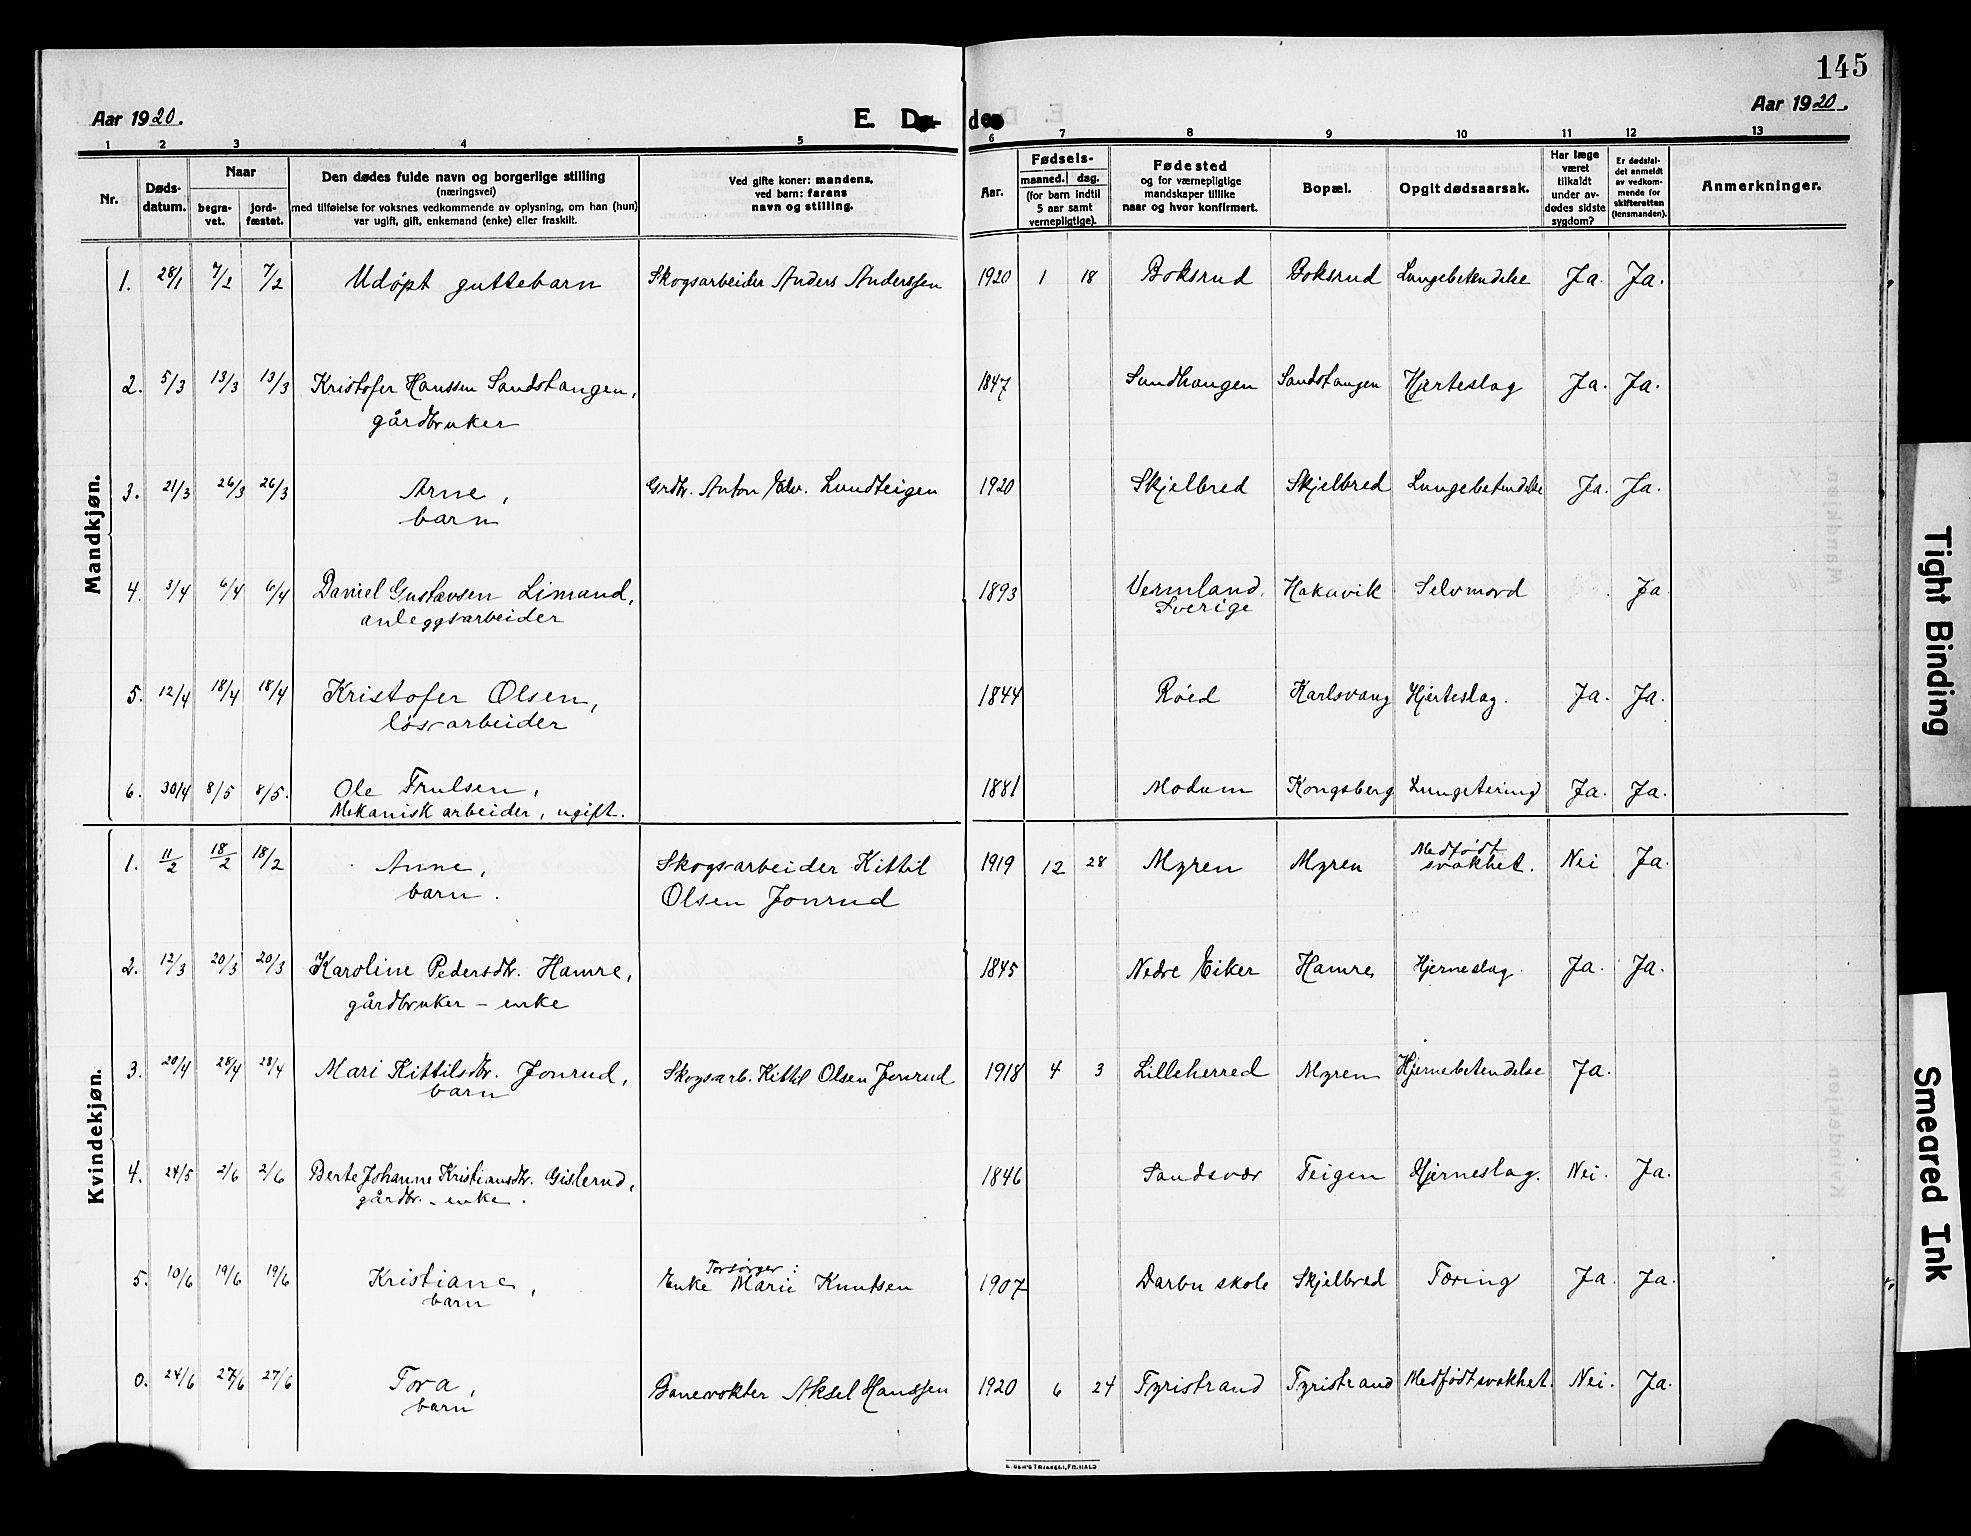 145
Aar 1920. E. Dø- de. Aar 1920.
1 2 3 4 5 6 7 8 9 10 11 12 13
Nr. Døds-datum. Naar begra-vet. jord-fæstet. Den dødes fulde navn og borgerlige stilling (næringsvei) med tilføielse for voksnes vedkommende av oplysning, om han (hun) var ugift, gift, enkemand (enke) eller fraskilt. Ved gifte koner: mandens, ved barn: farens navn og stilling. Aar. Fødsels- maaned. dag. (for barn indtil 5 aar samt vernepligtige). Fødested og for værnepligtige mandskaper tillike naar og hvor konfirmert. Bopæl. Opgit dødsaarsak. Har læge været tilkaldt under av-dødes sidste sygdom? Er dødsfal-det anmeldt av vedkom-mende for skifteretten (lensmanden). Anmerkninger.
Mandkjøn.
1. 28/1 7/2 7/2 Udøpt guttebarn Skogsarbeider Anders Anderssen 1920 1 18 Boksrud Boksrud Lungebetendelse Ja. Ja.
2. 5/3 13/3 13/3 Kristofer Hanssen Sandstangen, 1847 Sundhaugen Sandstangen Hjerteslag Ja. Ja.
gårdbruker
3. 21/3 26/3 26/3 Arne, Grdbr. Anton Edv. Lundteigen 1920 Skjelbred Skjelbred Lungebetendelse Ja. Ja.
barn
4. 3/4 6/4 6/4 Daniel Gustavsen Limand, 1893 Vermland, Hakavik Selvmord Ja
anleggsarbeider Sverige
5. 12/4 18/4 18/4 Kristofer Olsen, 1844 Røed Karlsvang Hjerteslag. Ja. Ja.
løsarbeider
6. 30/4 8/5 8/5. Ole Trulsen, 1881 Modum Kongsberg Lungetering Ja. Ja.
Mekanisk arbeider, ugift.
Kvindekjøn.
1. 11/2 18/2 18/2 Anne, Skogsarbeider Kittil 1919 12 28 Myren Myren Medfødt svakhet. Nei Ja.
barn. Olsen Jonrud
2. 12/3 20/3 20/3 Karoline Pedersdtr. Hamre, 1845 Nedre Eiker Hamre Hjerneslag. Ja. Ja.
gårdbruker - enke
3. 20/4 28/4 28/4 Mari Kittilsdtr. Jonrud, Skogsarb. Kittil Olsen Jonrud 1918 4 3 Lilleherred Myren Hjernebetendelse Ja.
barn
4. 24/5 2/6 2/6 Berte Johanne Kristiansdtr. Gislerud, 1846 Sandsvær Teigen Hjerneslag. Nei. Ja.
gårdbr. - enke.
Forsørger:
5. 10/6 19/6 19/6 Kristiane, Enke Marie Knutsen 1907 Darbu skole Skjelbred Tæring Ja. Ja.
barn
0. 24/6 27/6 27/6 Tora, Banevokter Aksel Hanssen 1920 6 24 Tyristrand Tyristrand Medfødt svakhet. Nei. Ja.
barn
Tight Binding
Smeared Ink